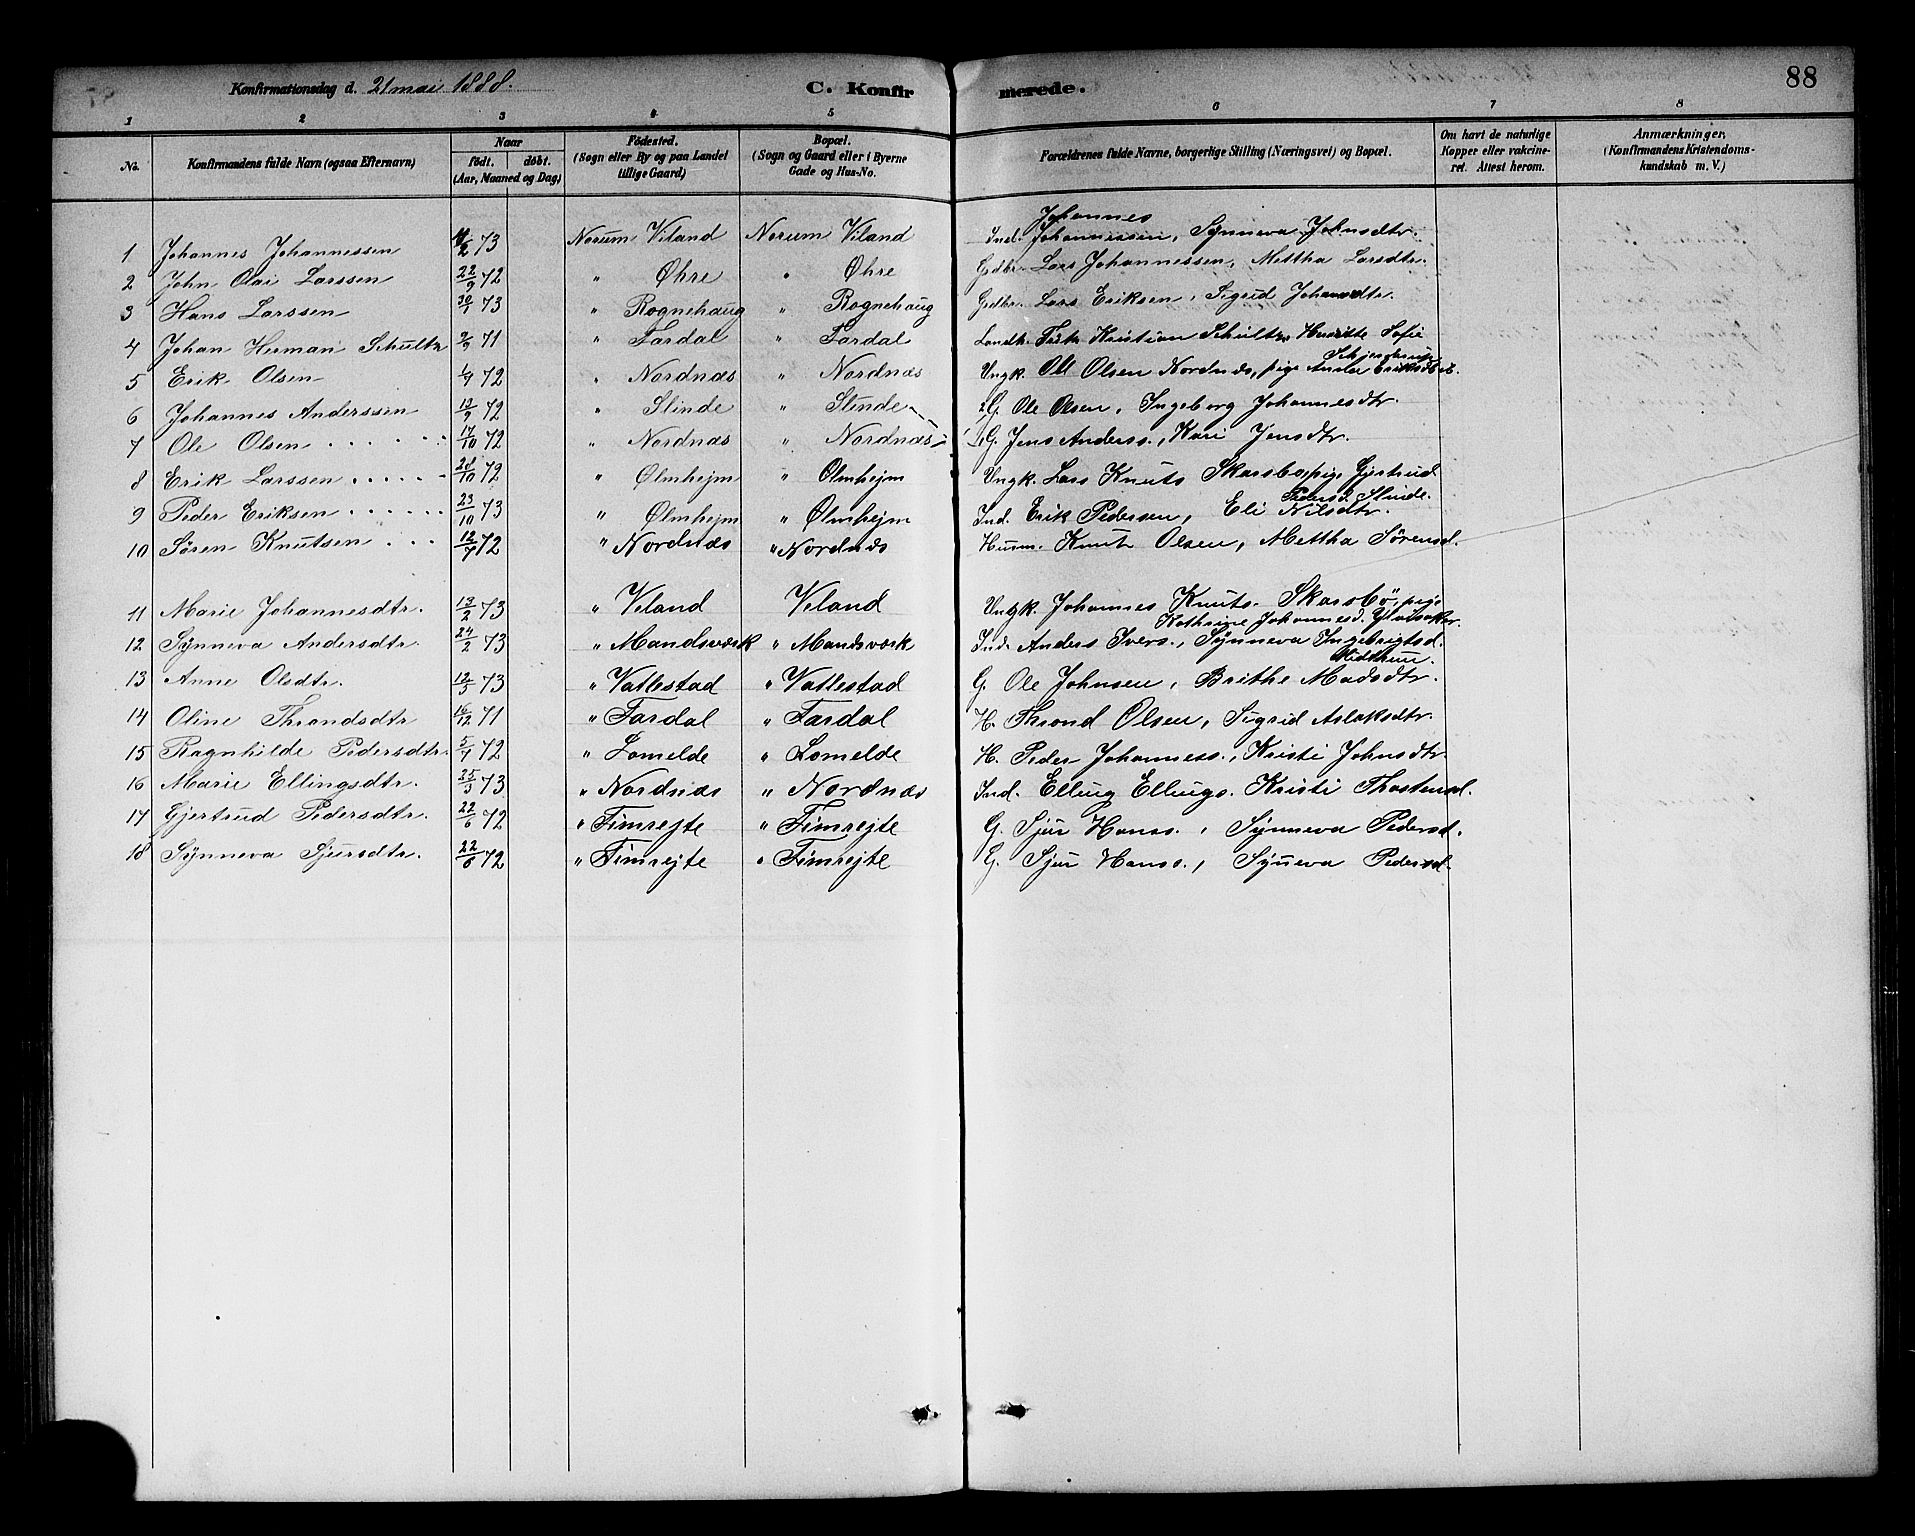 Konfirmationsdag d. 21 mai 1888. C. Konfirmerede. 88
1 2 3 4 5 6 7 8
No. Konfirmandens fulde Navn (ogsaa Efternavn) Naar født. døbt. (Aar, Maaned og Dag) Fødested. (Sogn eller By og paa Landet tillige Gaard) Bopæl. (Sogn og Gaard eller i Byerne Gade og Hus-No. Forældrenes fulde Navne, borgerlige Stilling (Næringsvei) og Bopæl. Om havt de naturlige Kopper eller vakcineret. Attest herom. Anmærkninger, (Konfirmandens Kristendomskundskab m. V.)
1 Johannes Johannessen /2 73 Norum Viland Norum Viland Ind. Johannes Johannessen, Synneva Johnsdtr.
2 John Olai Larssen 22/9 72 " Øhre " Øhre Grdbr. Lars Johannessen, Mettha Larsdtr.
3 Hans Larssen 30/1 73 " Rognehaug " Rognehaug Grdbr. Lars Eriksen, Sigrid Johansdtr.
4 Johan Herman Schultz 2/9 71 " Fardal " Fardal Landh. Fredr. Kristian Schultz, Henritte Sofie Schjerdrup
5 Erik Olsen 1/9 72 " Nordnæs " Nordnæs Ungk. Ole Olsen Nordnæs, pige Anna Eriksdtr.
6 Johannes Anderssen 13/9 72 " Slinde " Slinde 2 G. Ole Olsen, Ingeborg Johannesdtr.
7 Ole Olsen 17/10 72 " Nordnæs " Nordnæs 1 G. Jens Anderss., Kari Jensdtr.
8 Erik Larssen 28/10 72 " Ølmhejm " Ølmhejm Ungk. Lars Knuts Skarsbo, pige Gjertrud Pedersd. Slinde.
9 Peder Eriksen 23/10 73 " Ølmhejm " Ølmhejm Ind. Erik Pedersen, Eli Nilsdtr.
10 Søren Knutsen 12/7 72 " Nordnæs " Nordnæs Husm. Knut Olsen, Mettha Sørensd.
11 Marie Johannesdtr. 13/2 73 " Veland Veland Ungk. Johannes Knuts. Skarsbö, pige Kathrine Johannesd.
12 Synneva Andersdtr. 24/2 73 " Mandsværk " Mandsværk Ind. Anders Ivers., Synneva Ingebrigtsd.
13 Anne Olsdtr. 12/3 73 " Vatlestad " Vatlestad G. Ole Johnsen, Brithe Madsdtr. Midttun.
14 Oline Throndsdtr 16/12 71 " Fardal " Fardal H. Thrond Olsen, Sigrid Aslaksdtr.
15 Ragnhilde Pedersdtr. 5/7 72 " Lomelde " Lomelde H. Peder Johanness., Kristi Johnsdtr.
16 Marie Ellingsdtr. 25/3 73 " Nordnæs " Nordnæs Ind. Elling Ellings. Kristi Thostensd.
17 Gjertrud Pedersdtr. 22/6 72 " Fimrejte " Fimrejte G. Sjur Hanss., Synneva Pedersd.
18 Synneva Sjursdtr. 22/6 72 " Fimrejte " Fimrejte G. Sjur Hanss., Synneva Pedersd.